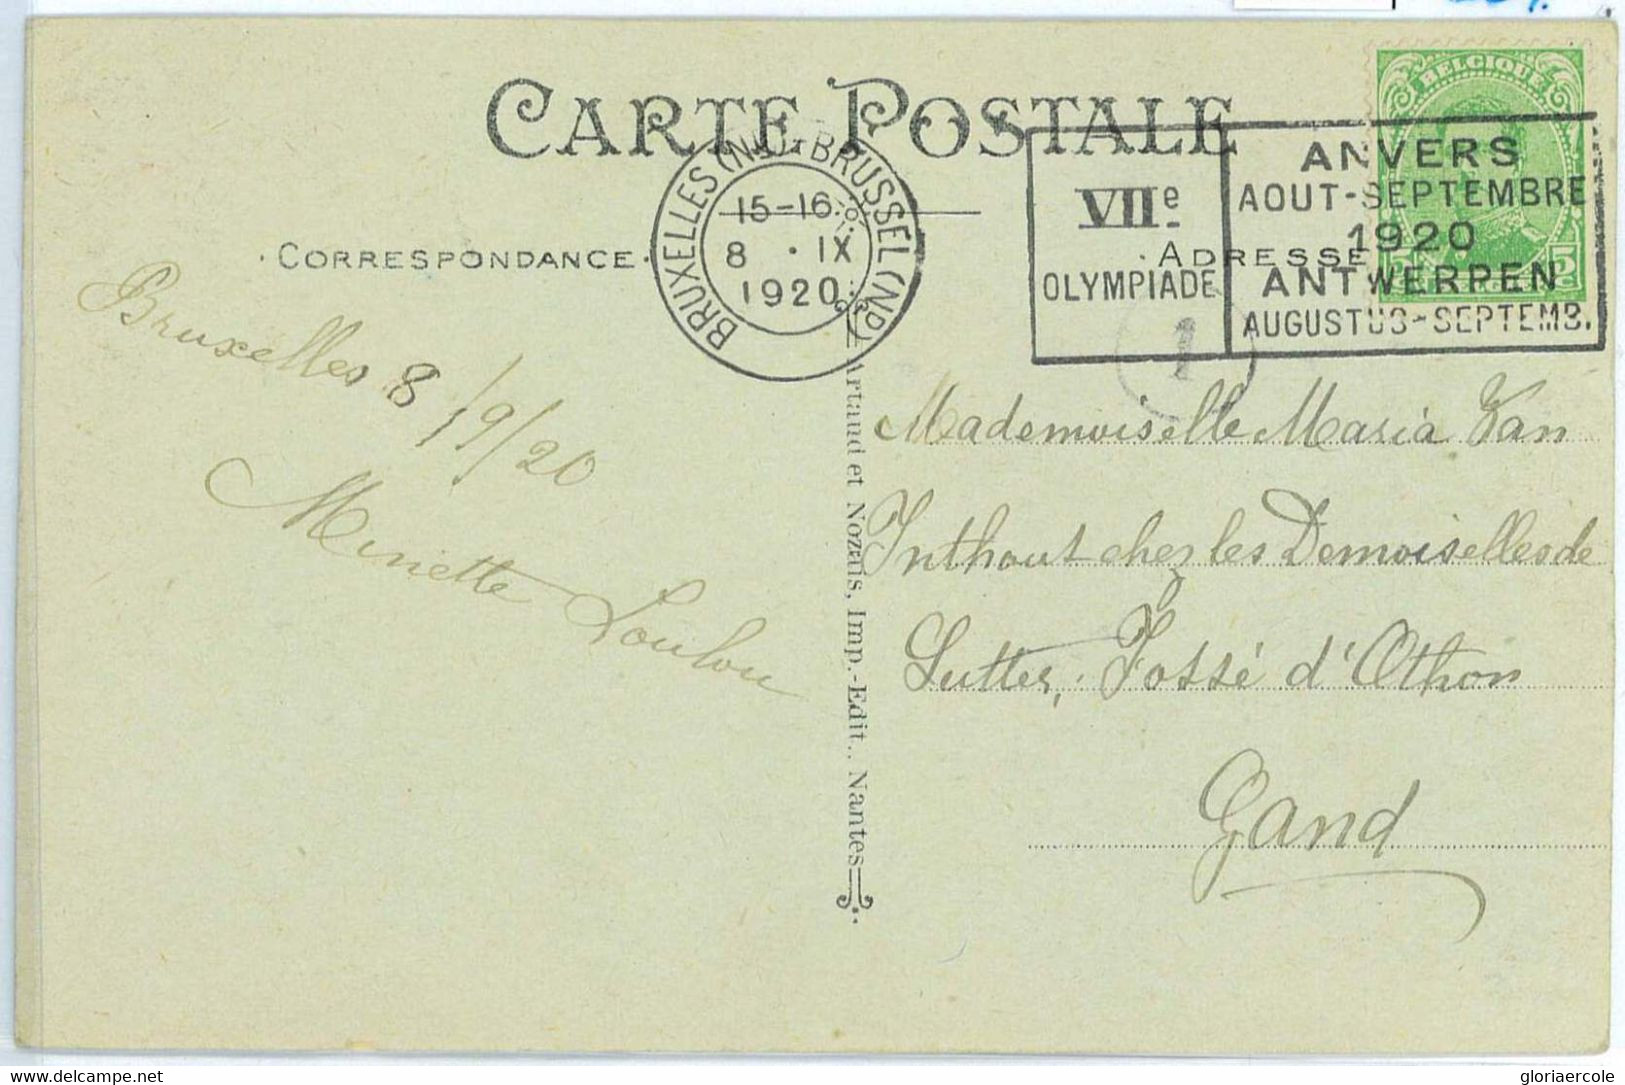 CARTE POSTALE
BELGIQUE
BRUXELLES (N.)1-BRUSSEL (ND)
15-16
8 · IX
1920
VIIe
OLYMPIADE
ANVERS
AOUT-SEPTEMBRE
1920
ANTWERPEN
AUGUSTUS-SEPTEMB.
5
1
· CORRESPONDANCE ·
· ADRESSE
Bruxelles 8/9/20
Minette Loulou
Artaud et Nozais, Imp.-Edit., Nantes
Mademoiselle Maria Van
Inthout chez les Demoiselles de
Sutter, Fossé d'Othon
Gand
delcampe.net
gloriaercole